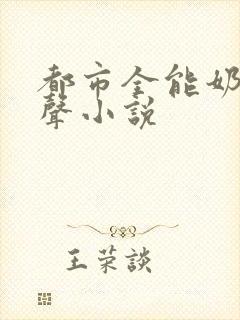 都市全能奶
聲小説
王荣談